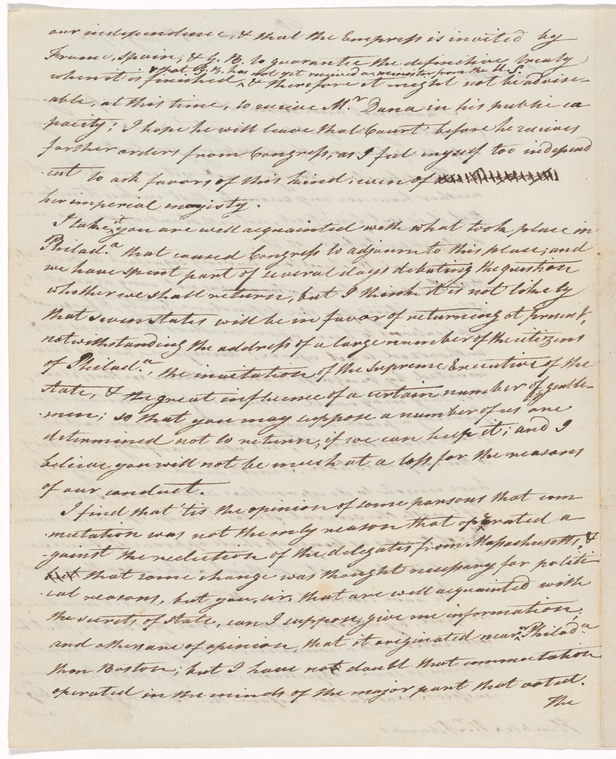 our independence, & that the Empress is invited by
France, Spain, & G. B. to guarantee the definitive treaty
& that G. B. has not yet received a minister from the U. S.
when it is finished, & therefore it might not be advise-
able, at this time, to receive Mr. Dana in his public ca
pacity; I hope he will leave that Court before he receives
farther orders from Congress, as I feel myself too independ
ent to ask favors of this kind, even of
her imperial majesty.
I take it you are well acquainted with what took place in
Philad.a that caused Congress to adjourn to this place; and
we have spent part of several days debating the question
whether we shall return, but I think it is not likely
that seven states will be in favor of returning at present,
notwithstanding the address of a large number of the citizens
of Philad.a, the invitation of the Supreme Executive of the
state, & the great influence of a certain number of gentle-
men; so that you may suppose a number of us are
determined not to return, if we can help it; and I
believe you will not be much at a loss for the reasons
of our conduct.
I find that 'tis the opinion of some persons that com
mutation was not the only reason that operated a
gainst the reelection of the delegates from Massachusetts, &
that some change was thought necessary for politi
cal reasons, but you, sir, that are well acquainted with
the secrets of State, can I suppose, give me information.
and others are of opinion, that it originated nearer Philad.a
than Boston; but I have not doubt that commutation
operated in the minds of the major part that voted.
The